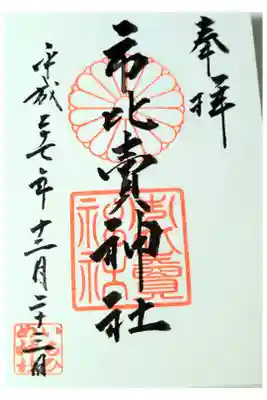 奉拝
市比賣神社
平成二十七年十二月二十三日